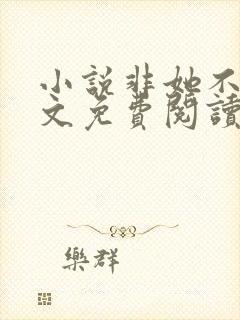 小說非她不
文免費閱讀
樂群